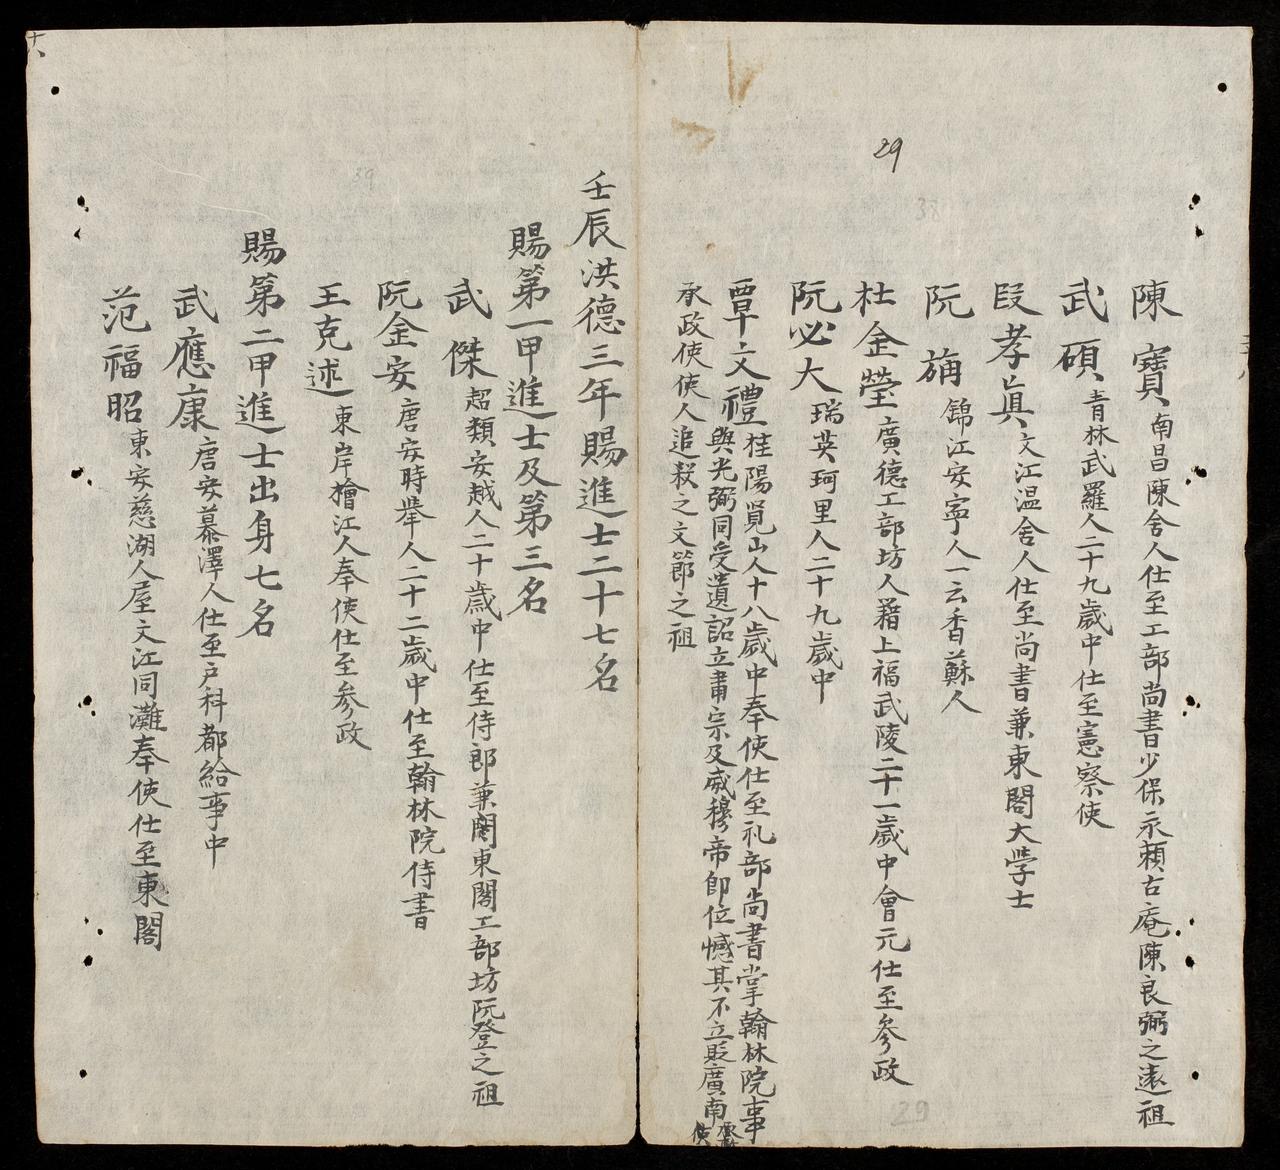 29
陳寶南昌陳舍人仕至工部尚書少保永賴古庵陳良弼之遠祖
武碩青林武羅人二十九歲中仕至憲察使
段孝眞文江温舍人仕至尚書兼東閣大學士
阮旃錦江安寧人一云香蘇人
杜金瑩廣德工部坊人籍上福武陵二十一歲中會元仕至參政
阮必大瑞英珂里人二十九歲中
覃文禮桂陽覽山人十八歲中奉使仕至礼部尚書掌翰林院事
與光弼同受遺詔立肅宗及威穆帝卽位憾其不立貶廣南
承政使使人追殺之文節之祖
壬辰洪德三年賜進士二十七名
賜第一甲進士及第三名
武傑超類安越人二十歲中仕至侍郎兼閣東閣工部坊阮登之祖
阮金安唐安時舉人二十二歲中仕至翰林院侍書
王克述東岸檜江人奉使仕至參政
賜第二甲進士出身七名
武應康唐安慕澤人仕至戸科都給事中
范福昭東安慈湖人屋文江同灘奉使仕至東閣
29